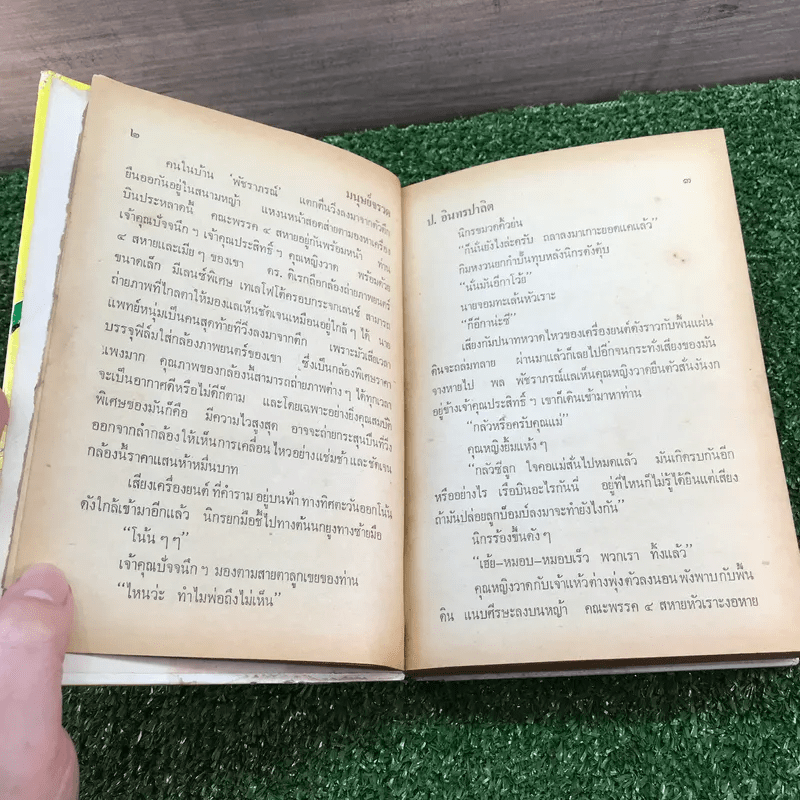 ๒
มนุษย์จรวด
คนในบ้าน ‘พัชราภรณ์’ แตกตื่นวิ่งลงมาจากตัวตึก
ยืนออกันอยู่ในสนามหญ้า แหงนหน้าสอดส่ายตามองหาเครื่อง
บินประหลาดนี้ คณะพรรค ๔ สหายอยู่กันพร้อมหน้า ท่าน
เจ้าคุณปัจจนึก ๆ เจ้าคุณประสิทธิ์ ๆ คุณหญิงวาด พร้อมด้วย
๔ สหายและเมีย ๆ ของเขา ดร. ดิเรกถือกล้องถ่ายภาพยนตร์
ขนาดเล็ก มีเลนซ์พิเศษ เทเลโฟโต้ครอบกระจกเลนซ์ สามารถ
ถ่ายภาพที่ไกลตาให้มองแลเห็นชัดเจนเหมือนอยู่ใกล้ ๆ ได้ นาย
แพทย์หนุ่มเป็นคนสุดท้ายที่วิ่งลงมาจากตึก เพราะมัวเสียเวลา
บรรจุฟิล์มใส่กล้องภาพยนตร์ของเขา ซึ่งเป็นกล้องพิเศษราคา
แพงมาก คุณภาพของกล้องนี้สามารถถ่ายภาพต่าง ๆ ได้ทุกเวลา
จะเป็นอากาศดีหรือไม่ดีก็ตาม และโดยเฉพาะอย่างยิ่งคุณสมบัติ
พิเศษของมันก็คือ มีความไวสูงสุด อาจจะถ่ายกระสุนปืนที่วิ่ง
ออกจากลำกล้องให้เห็นการเคลื่อนไหวอย่างแช่มช้า และชัดเจน
กล้องนี้ราคาแสนห้าหมื่นบาท
เสียงเครื่องยนต์ ที่คำราม อยู่บนฟ้า ทางทิศตะวันออกโน้น
ดังใกล้เข้ามาอีกแล้ว นิกรยกมือชี้ไปทางต้นนกยูงทางซ้ายมือ
“โน้น ๆ ๆ”
เจ้าคุณปัจจนึก ๆ มองตามสายตาลูกเขยของท่าน
“ไหนว่ะ ทำไมพ่อถึงไม่เห็น”
๓
ป. อินทรปาลิต
นิกรขมวดคิ้วย่น
“ก็นั่นยังไงล่ะครับ ถลาลงมาเกาะยอดแคแล้ว”
กิมหงวนยกกำปั้นทุบหลังนิกรดังตุ้บ
“นั่นมันอีกาโว้ย”
นายจอมทะเล้นหัวเราะ
“ก็อีกาน่ะซี”
เสียงกัมปนาทหวาดไหวของเครื่องยนต์ดังราวกับพื้นแผ่น
ดินจะถล่มทลาย ผ่านมาแล้วก็เลยไปอีกจนกระทั่งเสียงของมัน
จางหายไป พล พัชราภรณ์แลเห็นคุณหญิงวาดยืนตัวสั่งงันงก
อยู่ข้างเจ้าคุณประสิทธิ์ ๆ เขาก็เดินเข้ามาหาท่าน
“กลัวหรือครับคุณแม่”
คุณหญิงยิ้มแห้ง ๆ
“กลัวซีลูก ใจคอแม่สั่นไปหมดแล้ว มันเกิดรบกันอีก
หรืออย่างไร เรือบินอะไรกันนี่ อยู่ที่ไหนก็ไม่รู้ได้ยินแต่เสียง
ถ้ามันปล่อยลูกบ็อมบ์ลงมาจะทำยังไงกัน”
นิกรร้องขึ้นดัง ๆ
“เฮ้ย–หมอบ–หมอบเร็ว พวกเรา ทิ้งแล้ว”
คุณหญิงวาดกับเจ้าแห้วต่างพุ่งตัวลงนอน พังพาบ กับพื้น
ดิน แนบศีรษะลงบนหญ้า คณะพรรค ๔ สหายหัวเราะงอหาย